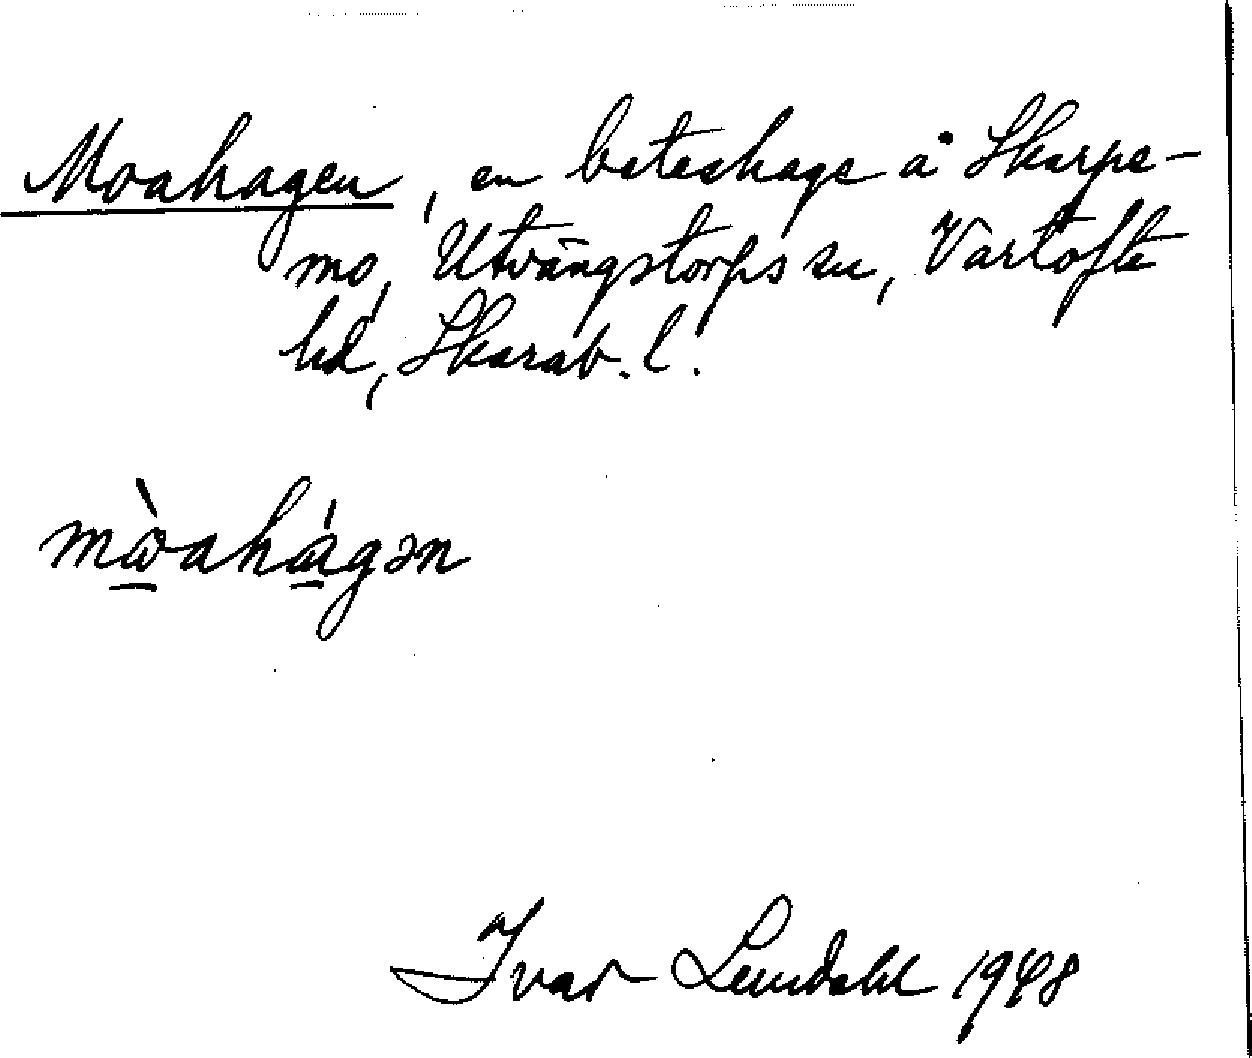 Moahagen, en beteshage å Skarpe-
mo, Utvängstorps sn, Vartofta
hd, Skarab. l.
mòahágən
Ivar Lundahl 1948